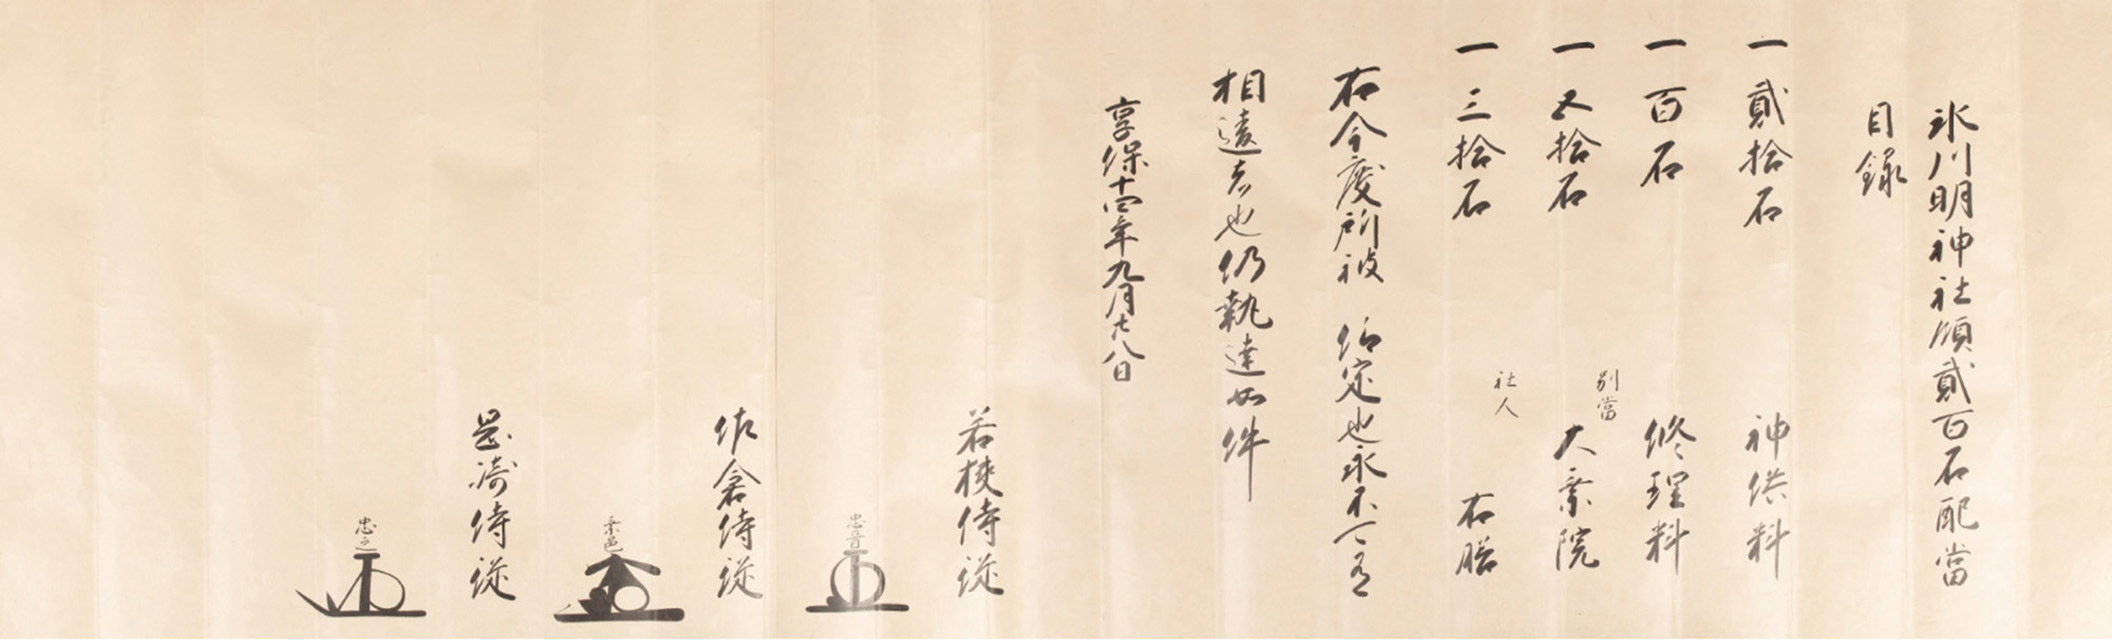 氷川明神社領貳百石配當
目録
一貳拾石 神供料
一百石 修理料
一五拾石 別當 大乗院
一三拾石 社人 右膳
右今度所被 仰定也永不可有
相違者也仍執達如件
享保十四年九月廿八日
若狭侍従 忠音
佐倉侍従 乗邑
岡崎侍従 忠之